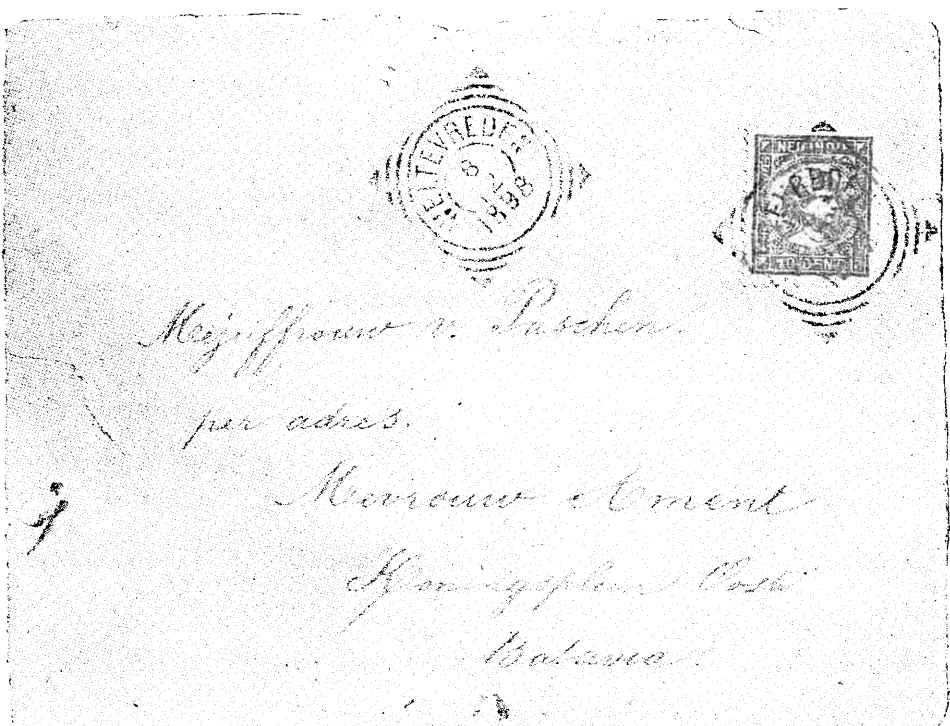 WELTEVREDEN
8
1898
NED-INDIE
10 CENT
Mejuffrouw v. Puschen.
per adres.
Mevrouw Ament
Koningsplein Oost
Batavia.